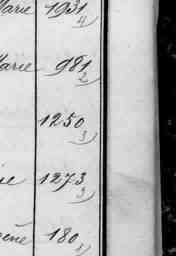 Marie 1931
4)
Marie 981
2
1250
3)
1273
3)
180